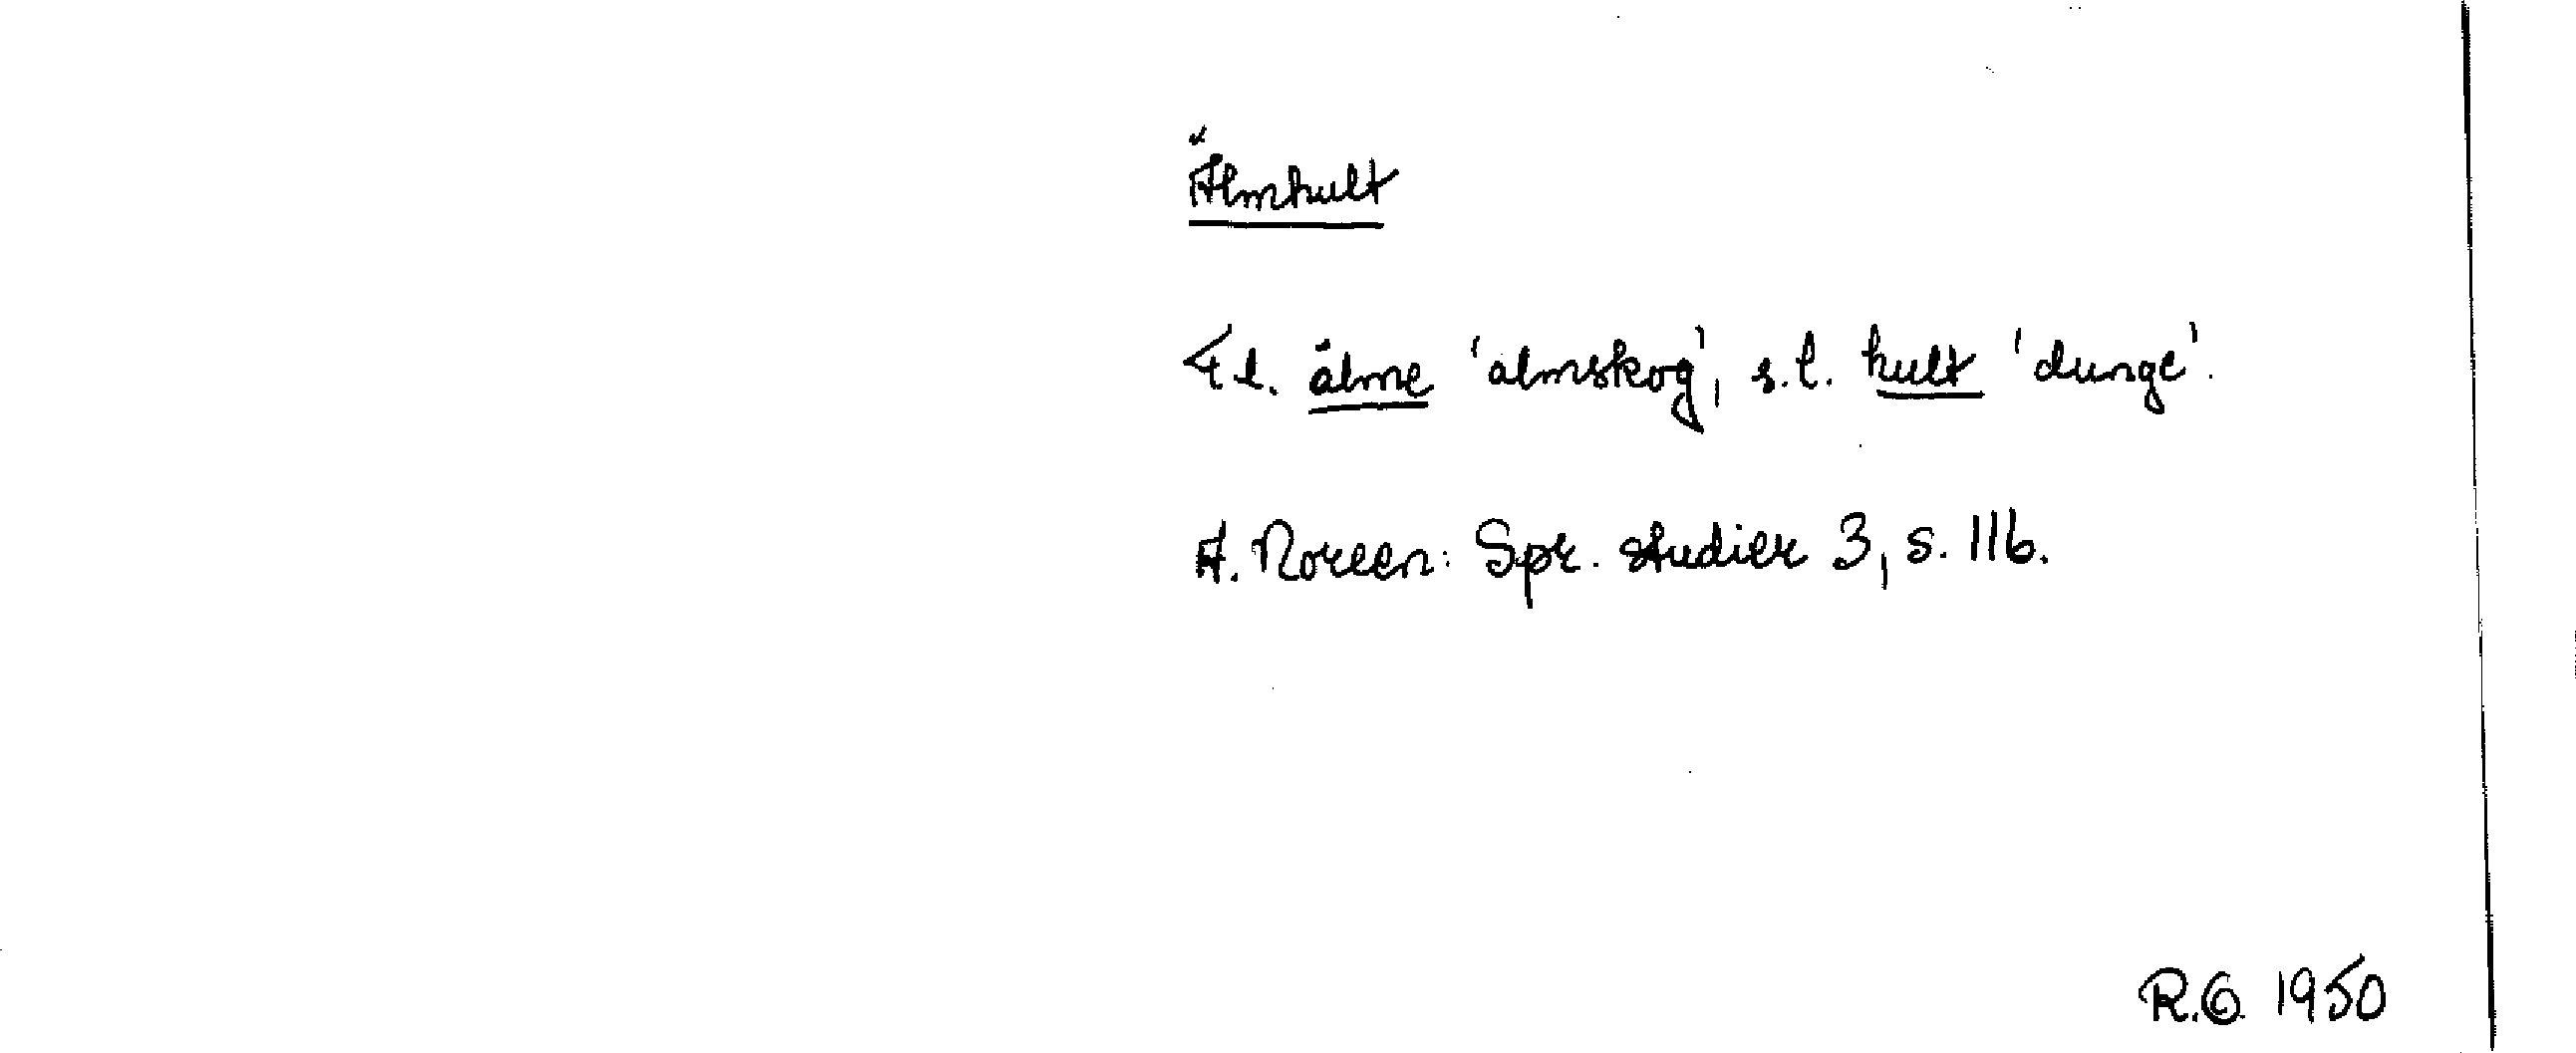 Älmhult
F.l. älme 'almskog', s.l. hult 'dunge'.
A. Noreen: Spr. studier 3, s. 116.
R.G 1950